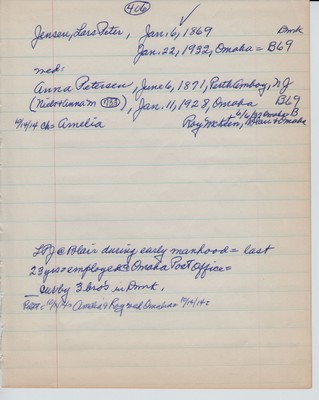 406
Jensen, Lars Peter, Jan. 6, 1869 Dmk
Jan. 22, 1932, Omaha = B69
med:
Anna Petersen, June 6, 1871, Perth Amboy, NJ
(Niels + Anna M 1955), Jan. 11, 1928, Omaha B69
6/6/37 Omaha = B
10/14/14 Ch = Amelia Roy McKeen, Blair + Omaha
LPJ @ Blair during early manhood = last
23 yrs = employee = Omaha Post Office =
surv by 3 bros in Dmk.
10/14/14 = Amelia + Roy med Omaha = 10/14/14 =